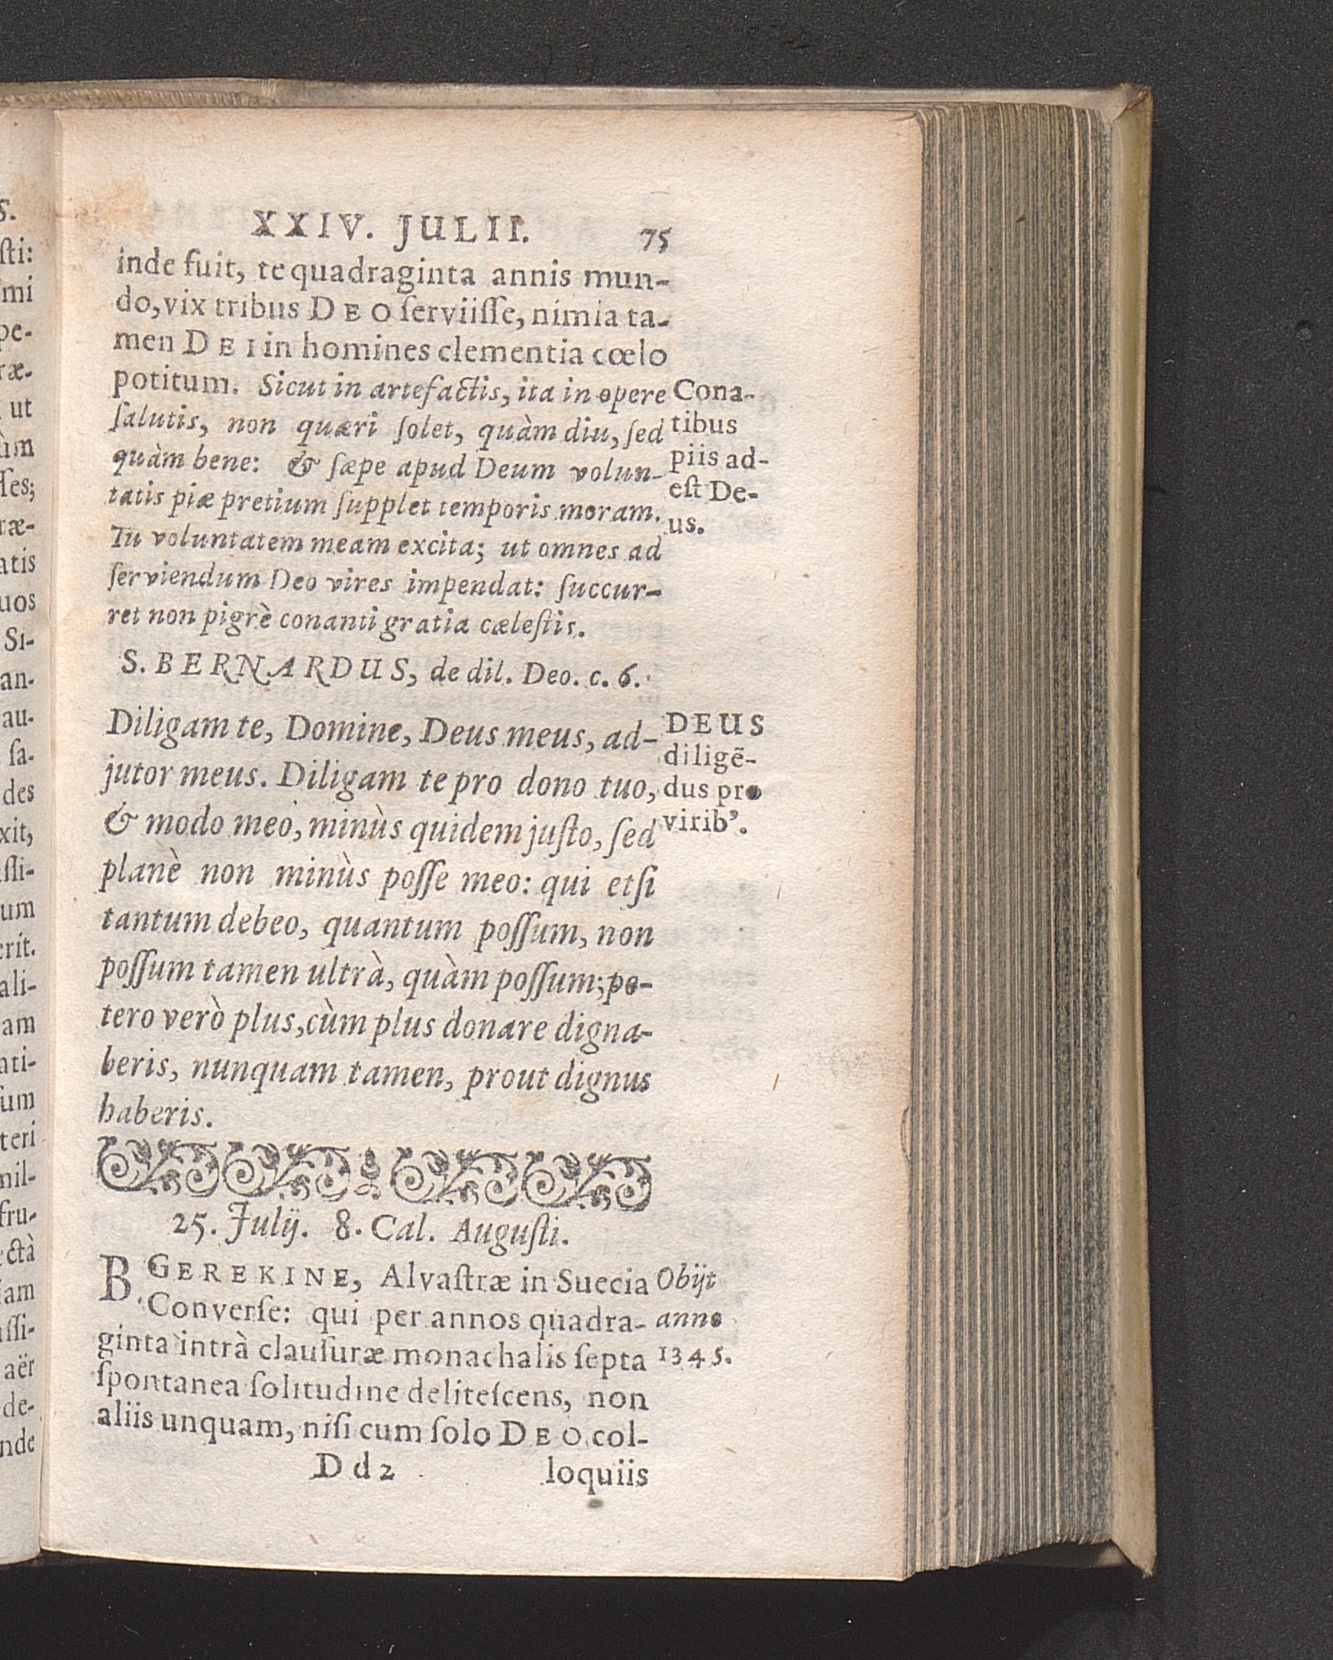 XXIV. JULII. 75
inde fuit, te quadraginta annis mun-
do, vix tribus DEO ſerviiſſe, nimia ta-
men DEI in homines clementia cœlo
potitum. Sicut in artefactis, ita in opere
ſalutis, non quæri ſolet, quàm diu, ſed
quàm bene: & ſæpe apud Deum volun-
tatis piæ pretium ſupplet temporis moram.
Tu voluntatem meam excita; ut omnes ad
ſerviendum Deo vires impendat: ſuccur-
ret non pigrè conanti gratia cæleſtis.
Cona-
tibus
piis ad-
eſt De-
us.
S. BERNARDUS, de dil. Deo. c. 6.
Diligam te, Domine, Deus meus, ad-
jutor meus. Diligam te pro dono tuo,
& modo meo, minùs quidem juſto, ſed
planè non minùs poſſe meo: qui etſi
tantum debeo, quantum poſſum, non
poſſum tamen ultrà, quàm poſſum; po-
tero verò plus, cùm plus donare digna-
beris, nunquam tamen, prout dignus
haberis.
DEUS
diligẽ-
dus pro
virib’.
25. Julij. 8. Cal. Auguſti.
B. GEREKINE, Alvaſtræ in Suecia
Converſe: qui per annos quadra-
ginta intrà clauſuræ monachalis ſepta
ſpontanea ſolitudine deliteſcens, non
aliis unquam, niſi cum ſolo DEO col-
Obijt
anno
1345.
Dd2 loquiis
S.
ſti:
mi
pe-
ræ-
ut
ùm
ſſes;
ræ-
atis
uos
Si-
an-
au-
ſa-
des
xit,
ſſi-
um
erit.
ali-
am
ati-
ſum
teri
mil-
fru-
ctà
ſam
ſſi-
aër
de-
nde